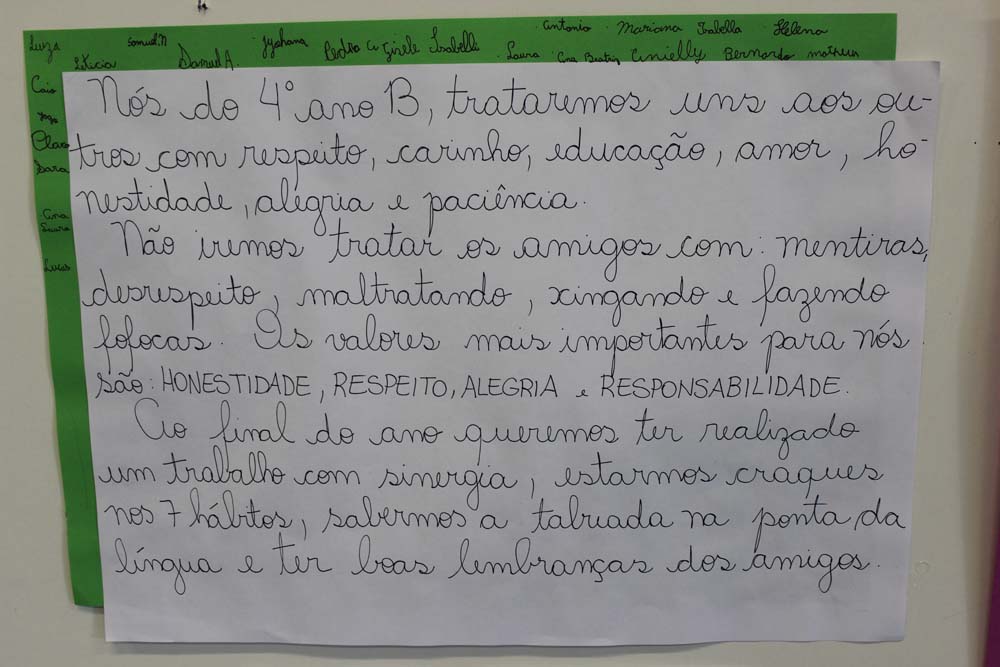 Luiza
Letícia
Samuel N
Samuel A.
Gisele Isabelli
Laura
Antonio
Mariana Isabella Helena
Ana Beatriz
Bernardo
Caio
Sara
Ana
Lucas
Nós do 4º ano B, trataremos uns aos ou-
tros com respeito, carinho, educação, amor, ho-
nestidade, alegria e paciência.
Não iremos tratar os amigos com: mentiras,
desrespeito, maltratando, xingando e fazendo
fofocas. Os valores mais importantes para nós
são: HONESTIDADE, RESPEITO, ALEGRIA e RESPONSABILIDADE.
Ao final do ano queremos ter realizado
um trabalho com sinergia, estarmos craques
nos 7 hábitos, sabermos a tabuada na ponta da
língua e ter boas lembranças dos amigos.